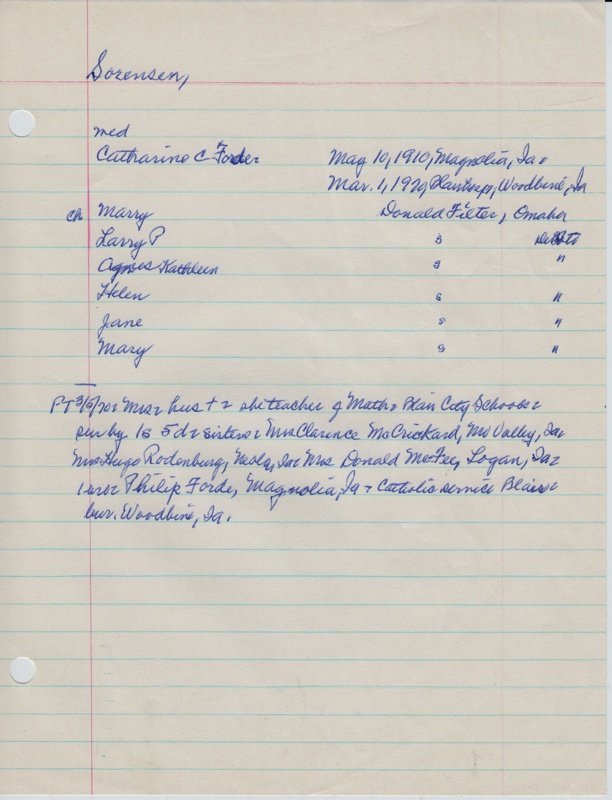 Sorensen,
med
Catharine C Forde May 10, 1910, Magnolia, Ia.
Mar. 1, 1970, Woodbine, Ia
ch Marry Donald Filter, Omaha
Larry P s
Agnes Kathleen s "
Helen s "
Jane s "
Mary s "
PT 3/5/70: Mrs: hus + : she teacher of Math: Blair City Schools:
sur by 1s 5d: sisters: Mrs Clarence McCrickard, Mo Valley, Ia:
Mrs Hugo Rodenburg, Neola, Ia: Mrs Donald McFee, Logan, Ia:
1 bro: Philip Forde, Magnolia, Ia : Catholic service Blair:
bur. Woodbine, Ia.